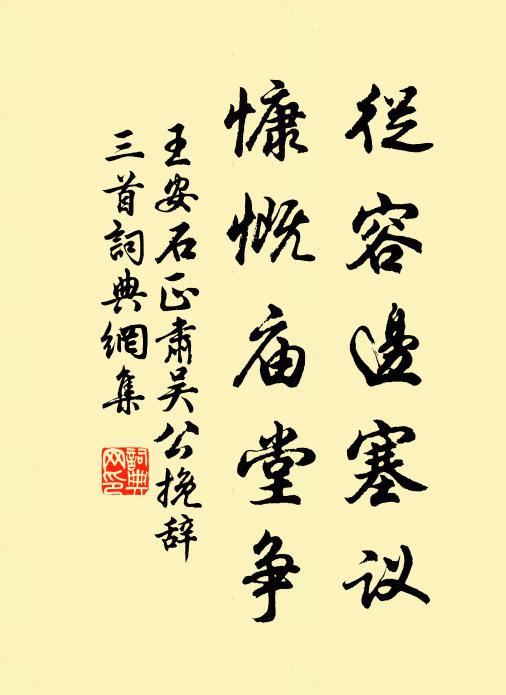 從容邊塞议
慷慨庙堂争
王安石正肅吴公挽辞
三首詞典網集
詞典网印